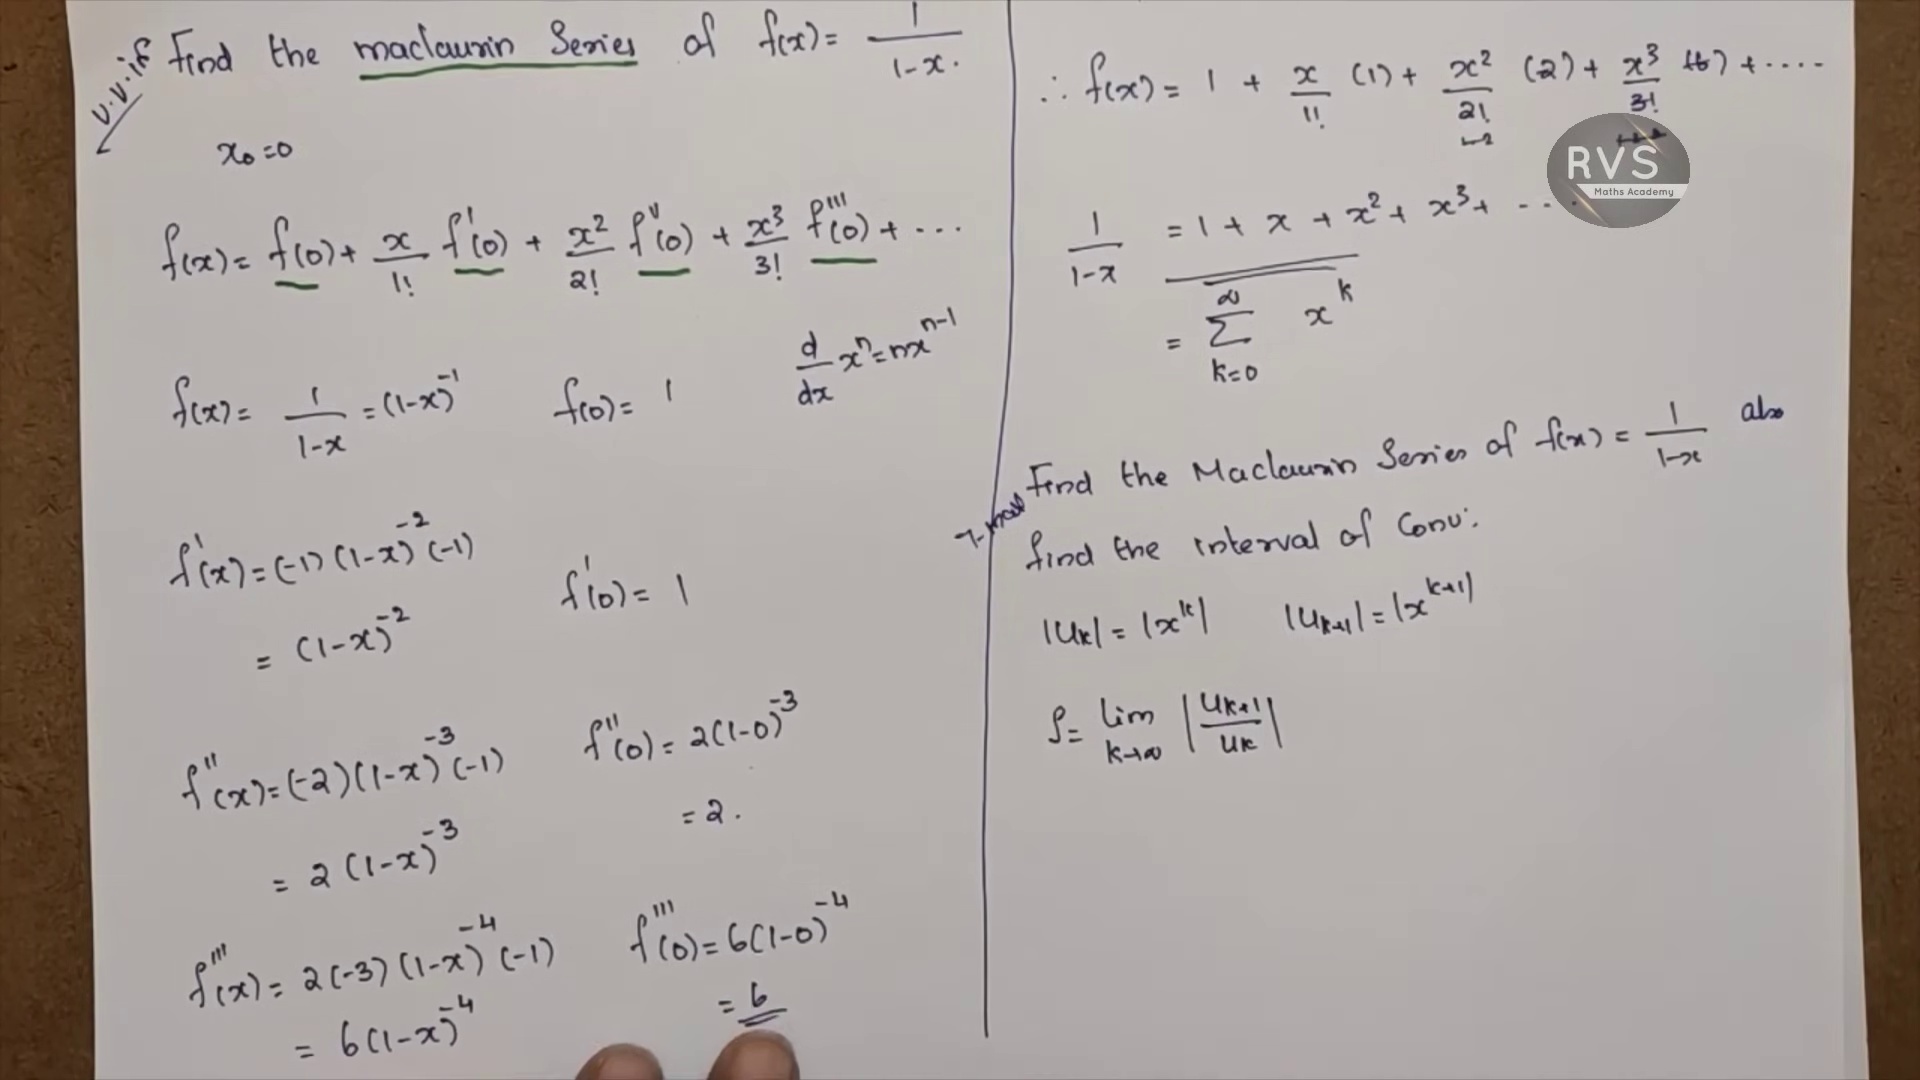 v.v.if Find the maclaurin Series of f(x) = 1/(1-x).
x₀=0
f(x) = f(0) + x/1! f'(0) + x²/2! f''(0) + x³/3! f'''(0) + ...
d/dx xⁿ = nxⁿ⁻¹
f(x) = 1/(1-x) = (1-x)⁻¹ f(0) = 1
f'(x) = (-1)(1-x)⁻²(-1)
= (1-x)⁻² f'(0) = 1
f''(x) = (-2)(1-x)⁻³(-1) f''(0) = 2(1-0)⁻³
= 2(1-x)⁻³ = 2.
f'''(x) = 2(-3)(1-x)⁻⁴(-1) f'''(0) = 6(1-0)⁻⁴
= 6(1-x)⁻⁴ = 6
∴ f(x) = 1 + x/1! (1) + x²/2! (2) + x³/3! (6) + ....
RVS
Maths Academy
1/(1-x) = 1 + x + x² + x³ + ...
= ∑_{k=0}^{∞} x^k
Find the Maclaurin Series of f(x) = 1/(1-x) also
find the interval of Conv:
|u_k| = |x^k| |u_{k+1}| = |x^{k+1}|
ρ = lim_{k→∞} |u_{k+1}/u_k|